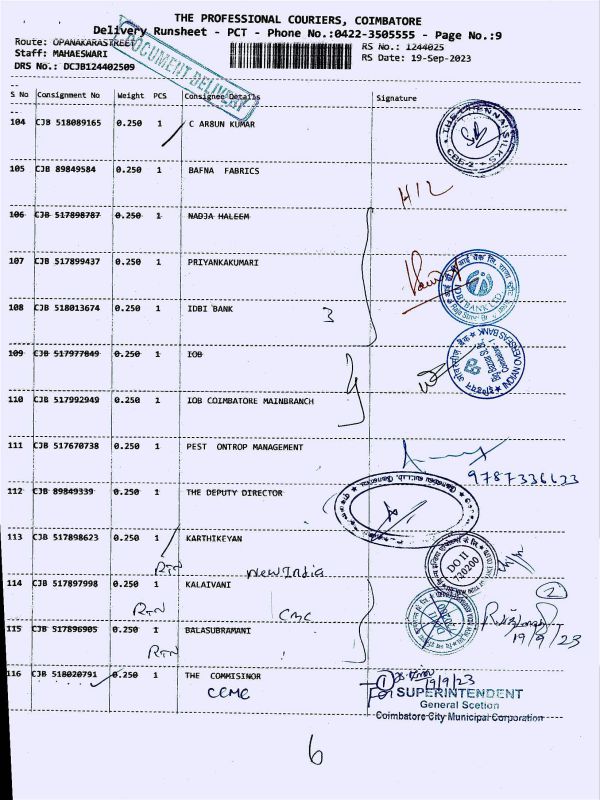 THE PROFESSIONAL COURIERS, COIMBATORE
Delivery Runsheet - PCT - Phone No.:0422-3505555 - Page No.:9
Route: OPANAKARASTREET
RS No.: 1244025
Staff: MAHAESWARI
RS Date: 19-Sep-2023
DRS No.: DCJB124402509
DOCUMENT DELIVERY
S No Consignment No Weight PCS Consignee Details Signature
104 CJB 518089165 0.250 1 C ARBUN KUMAR
THE CHENNAI SILKS
CBE-2
105 CJB 89849584 0.250 1 BAFNA FABRICS
H12
106 CJB 517898787 0.250 1 NADJA HALEEM
107 CJB 517899437 0.250 1 PRIYANKAKUMARI
108 CJB 518013674 0.250 1 IDBI BANK
3
IDBI BANK LTD.
109 CJB 517977849 0.250 1 IOB
INDIAN OVERSEAS BANK
110 CJB 517992949 0.250 1 IOB COIMBATORE MAINBRANCH
111 CJB 517670738 0.250 1 PEST ONTROP MANAGEMENT
9787336623
112 CJB 89849339 0.250 1 THE DEPUTY DIRECTOR
113 CJB 517898623 0.250 1 KARTHIKEYAN
RTN
New India
DO II
720200
114 CJB 517897998 0.250 1 KALAIVANI
RTN
CMC
2
19/9/23
115 CJB 517896905 0.250 1 BALASUBRAMANI
RTN
116 CJB 518020791 0.250 1 THE COMMISINOR
CCMC
1
19/9/23
For SUPERINTENDENT
General Scetion
Coimbatore City Municipal Corporation
6